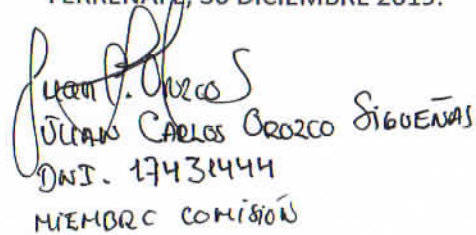 FERREÑAFE, 30 DICIEMBRE 2015.
Juan C. Orozco S
JUAN CARLOS OROZCO SIGUEÑAS
DNI. 17431444
MIEMBRO COMISIÓN